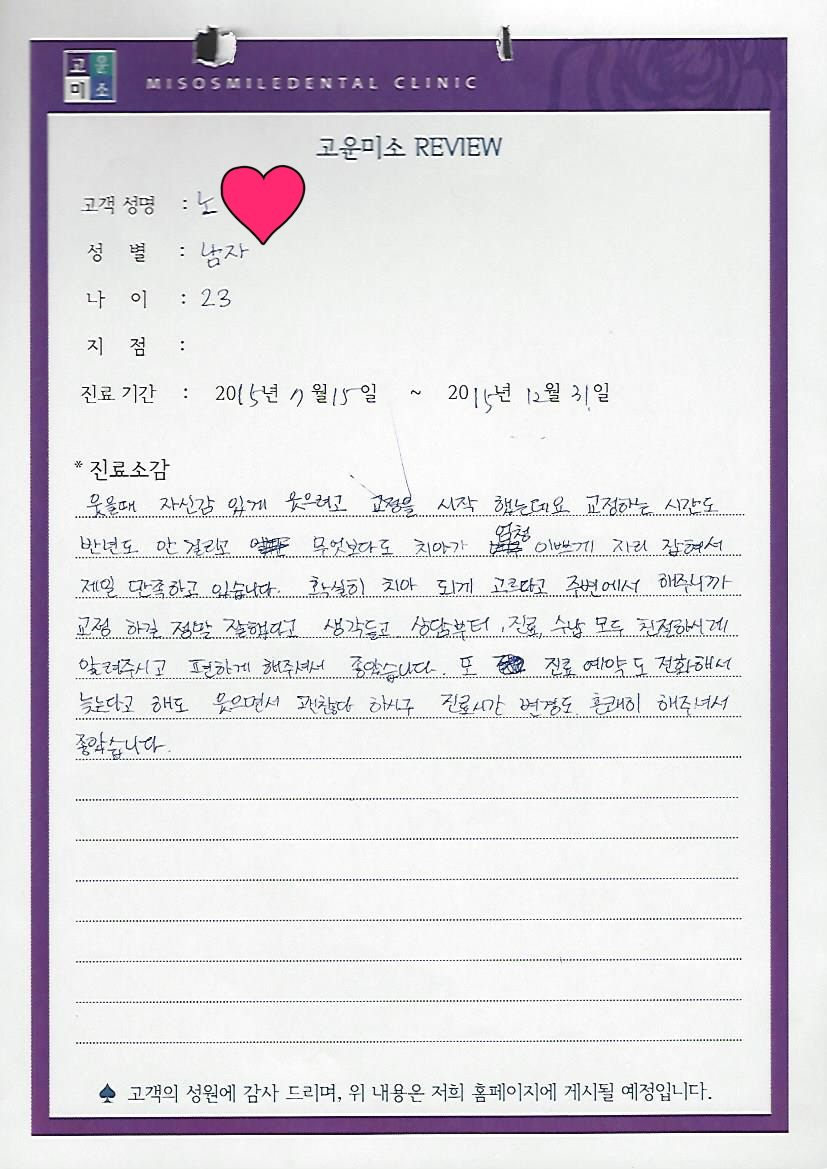 고운
미소
MISOSMILEDENTAL CLINIC
고운미소 REVIEW
고객 성명 : 노
성 별 : 남자
나 이 : 23
지 점 :
진료 기간 : 2015년 7월 15일 ~ 2015년 12월 31일
* 진료소감
웃을때 자신감 있게 웃으려고 교정을 시작 했는데요 교정하는 시간도
반년도 안 걸리고 무엇보다도 치아가 엄청 이쁘게 자리 잡혀서
제일 만족하고 있습니다. 확실히 치아 되게 고르다고 주변에서 해주니까
교정 하길 정말 잘했다고 생각들고 상담부터, 진료, 수납 모두 친절하시게
알려주시고 편하게 해주셔서 좋았습니다. 또 진료 예약도 전화해서
늦는다고 해도 웃으면서 괜찮다 하시구 진료시간 변경도 흔쾌히 해주셔서
좋았습니다.
♠ 고객의 성원에 감사 드리며, 위 내용은 저희 홈페이지에 게시될 예정입니다.